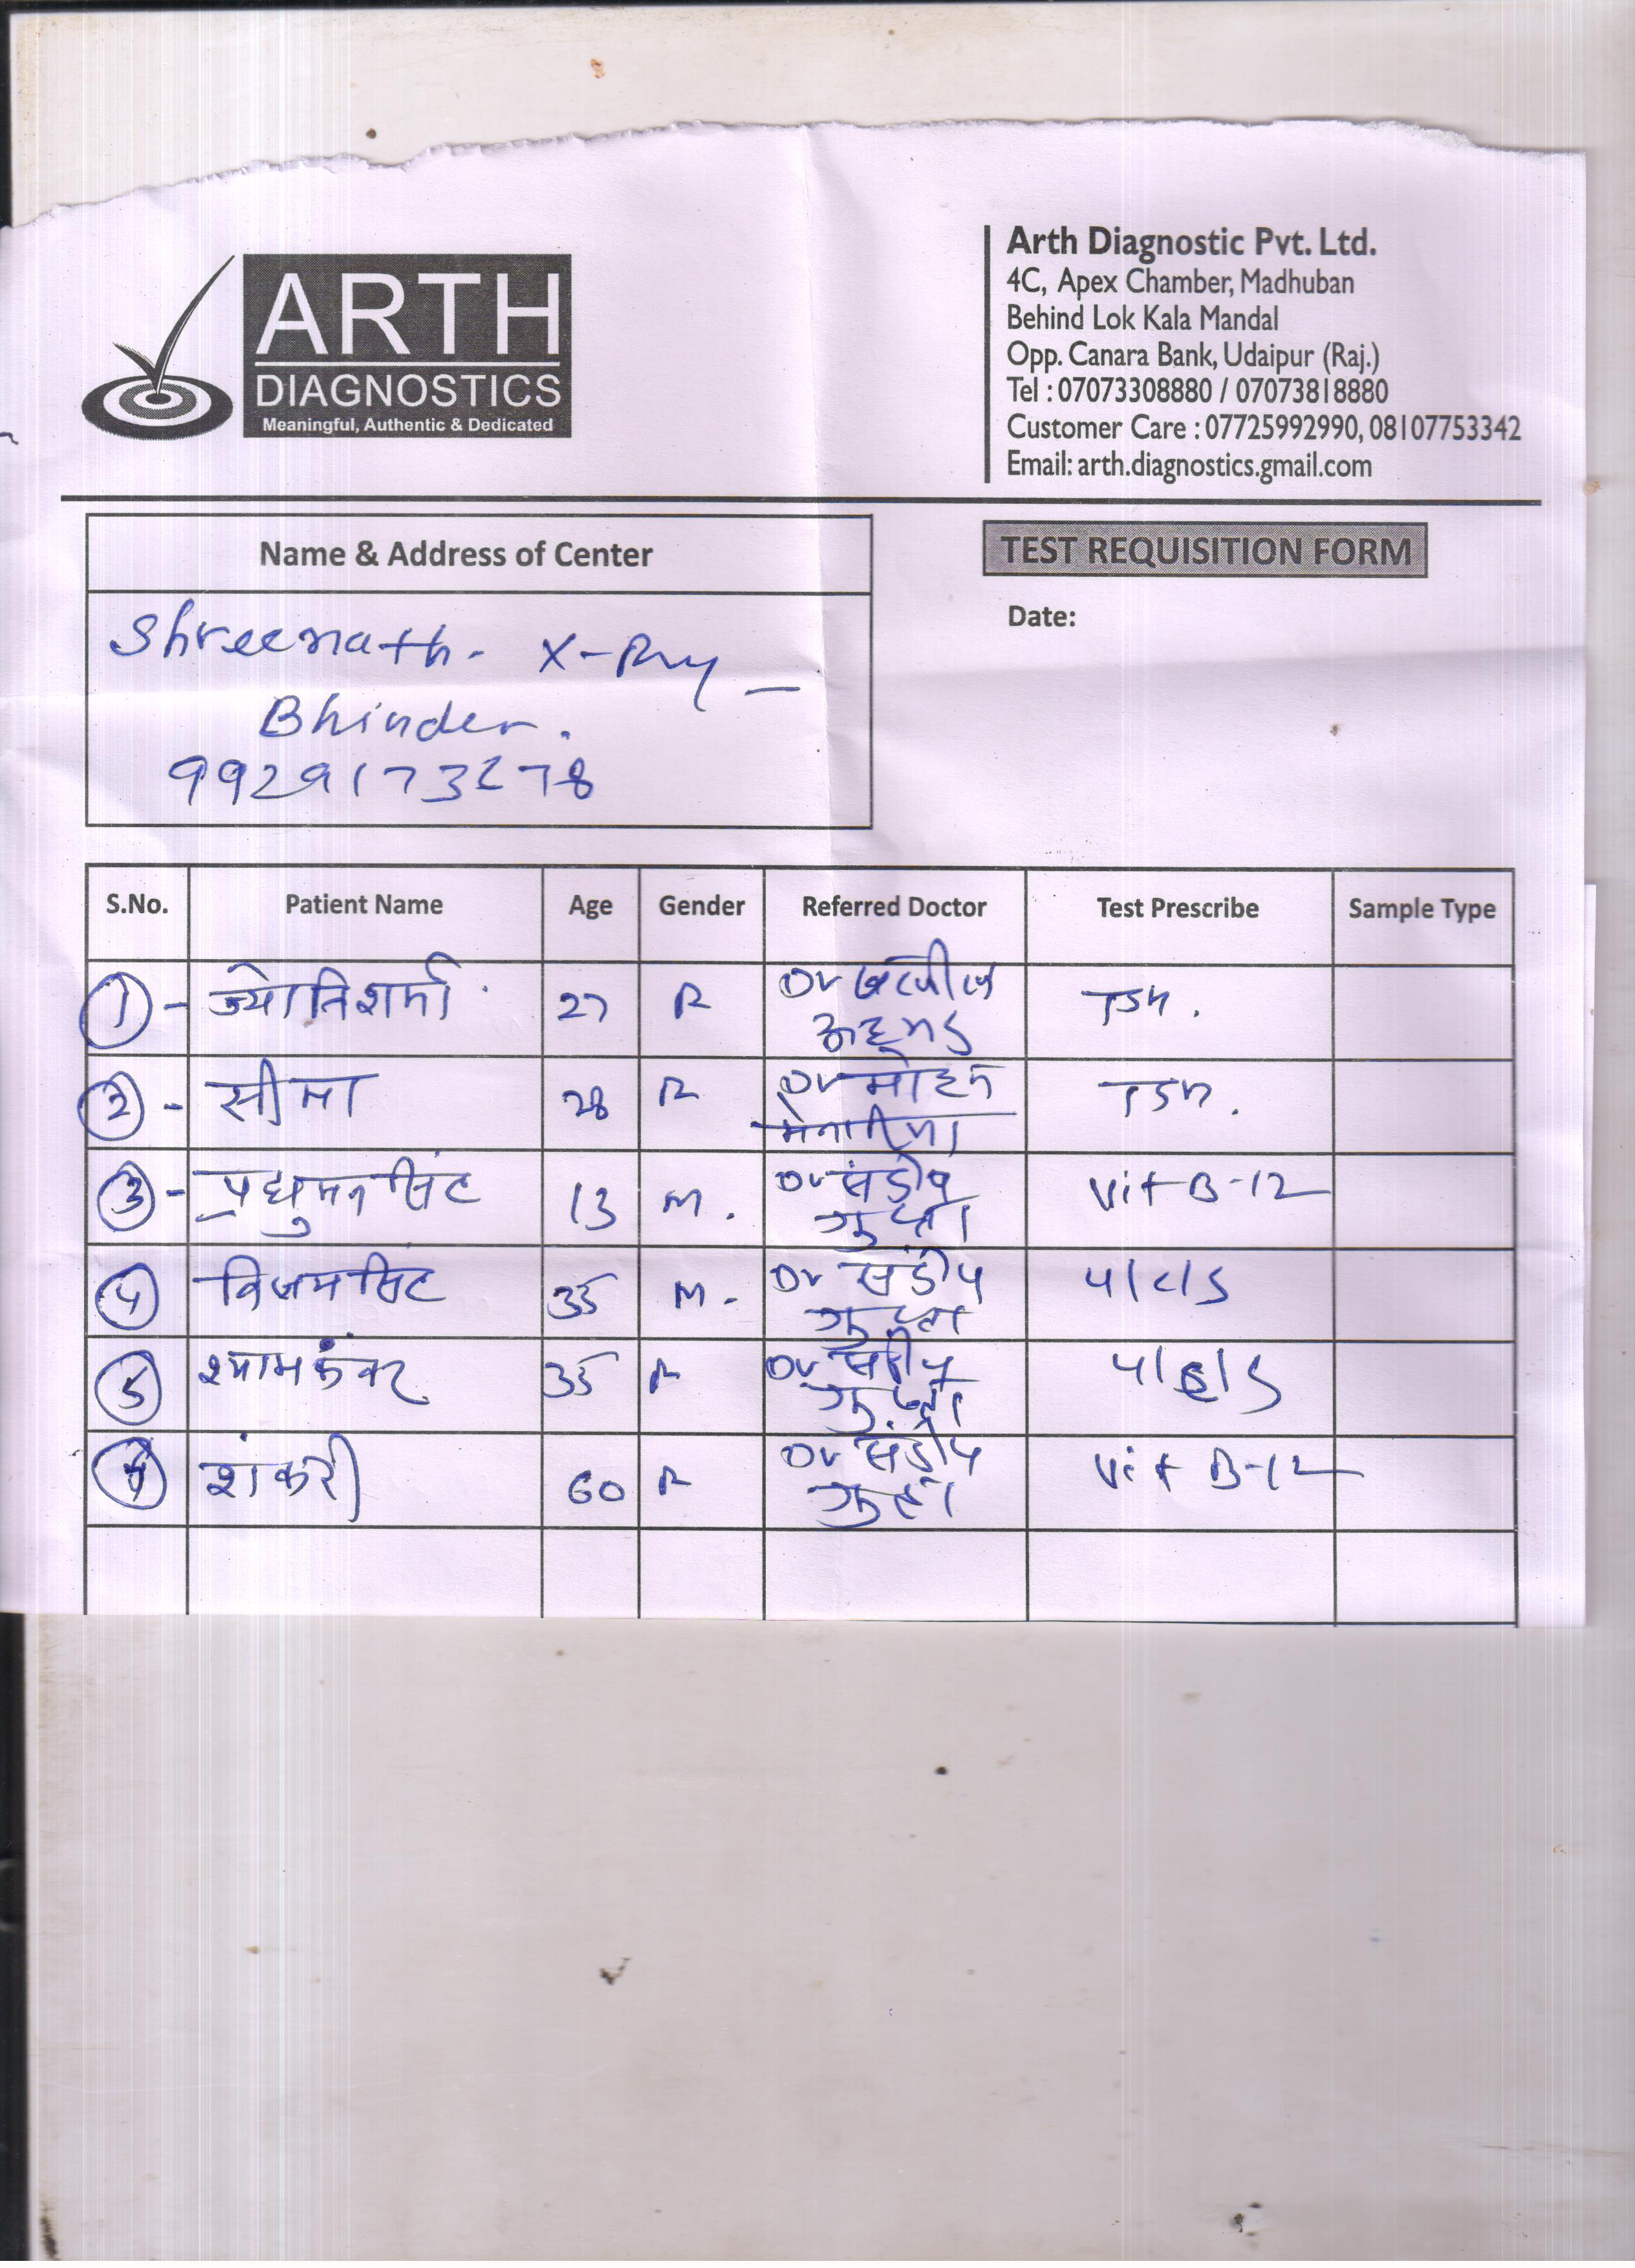 ARTH
DIAGNOSTICS
Meaningful, Authentic & Dedicated
Arth Diagnostic Pvt. Ltd.
4C, Apex Chamber, Madhuban
Behind Lok Kala Mandal
Opp. Canara Bank, Udaipur (Raj.)
Tel : 07073308880 / 07073818880
Customer Care : 07725992990, 08107753342
Email: arth.diagnostics.gmail.com
Name & Address of Center
TEST REQUISITION FORM
Date:
Shreenath. X-Ray
Bhinder.
S.No. Patient Name Age Gender Referred Doctor Test Prescribe Sample Type
1 - ज्योति शर्मा 27 Dr
अहमद
2 - सीमा 28 Dr मोहन
मेनारिया
3 - प्रधुमन सिंह 13 M. Dr संदीप Vit B-12
गुप्ता
4 विजय सिंह 35 M. Dr संदीप
गुप्ता
5 श्याम कंवर 35 Dr संदीप
गुप्ता
6 शंकरी 60 Dr संदीप Vit B-12
गुप्ता